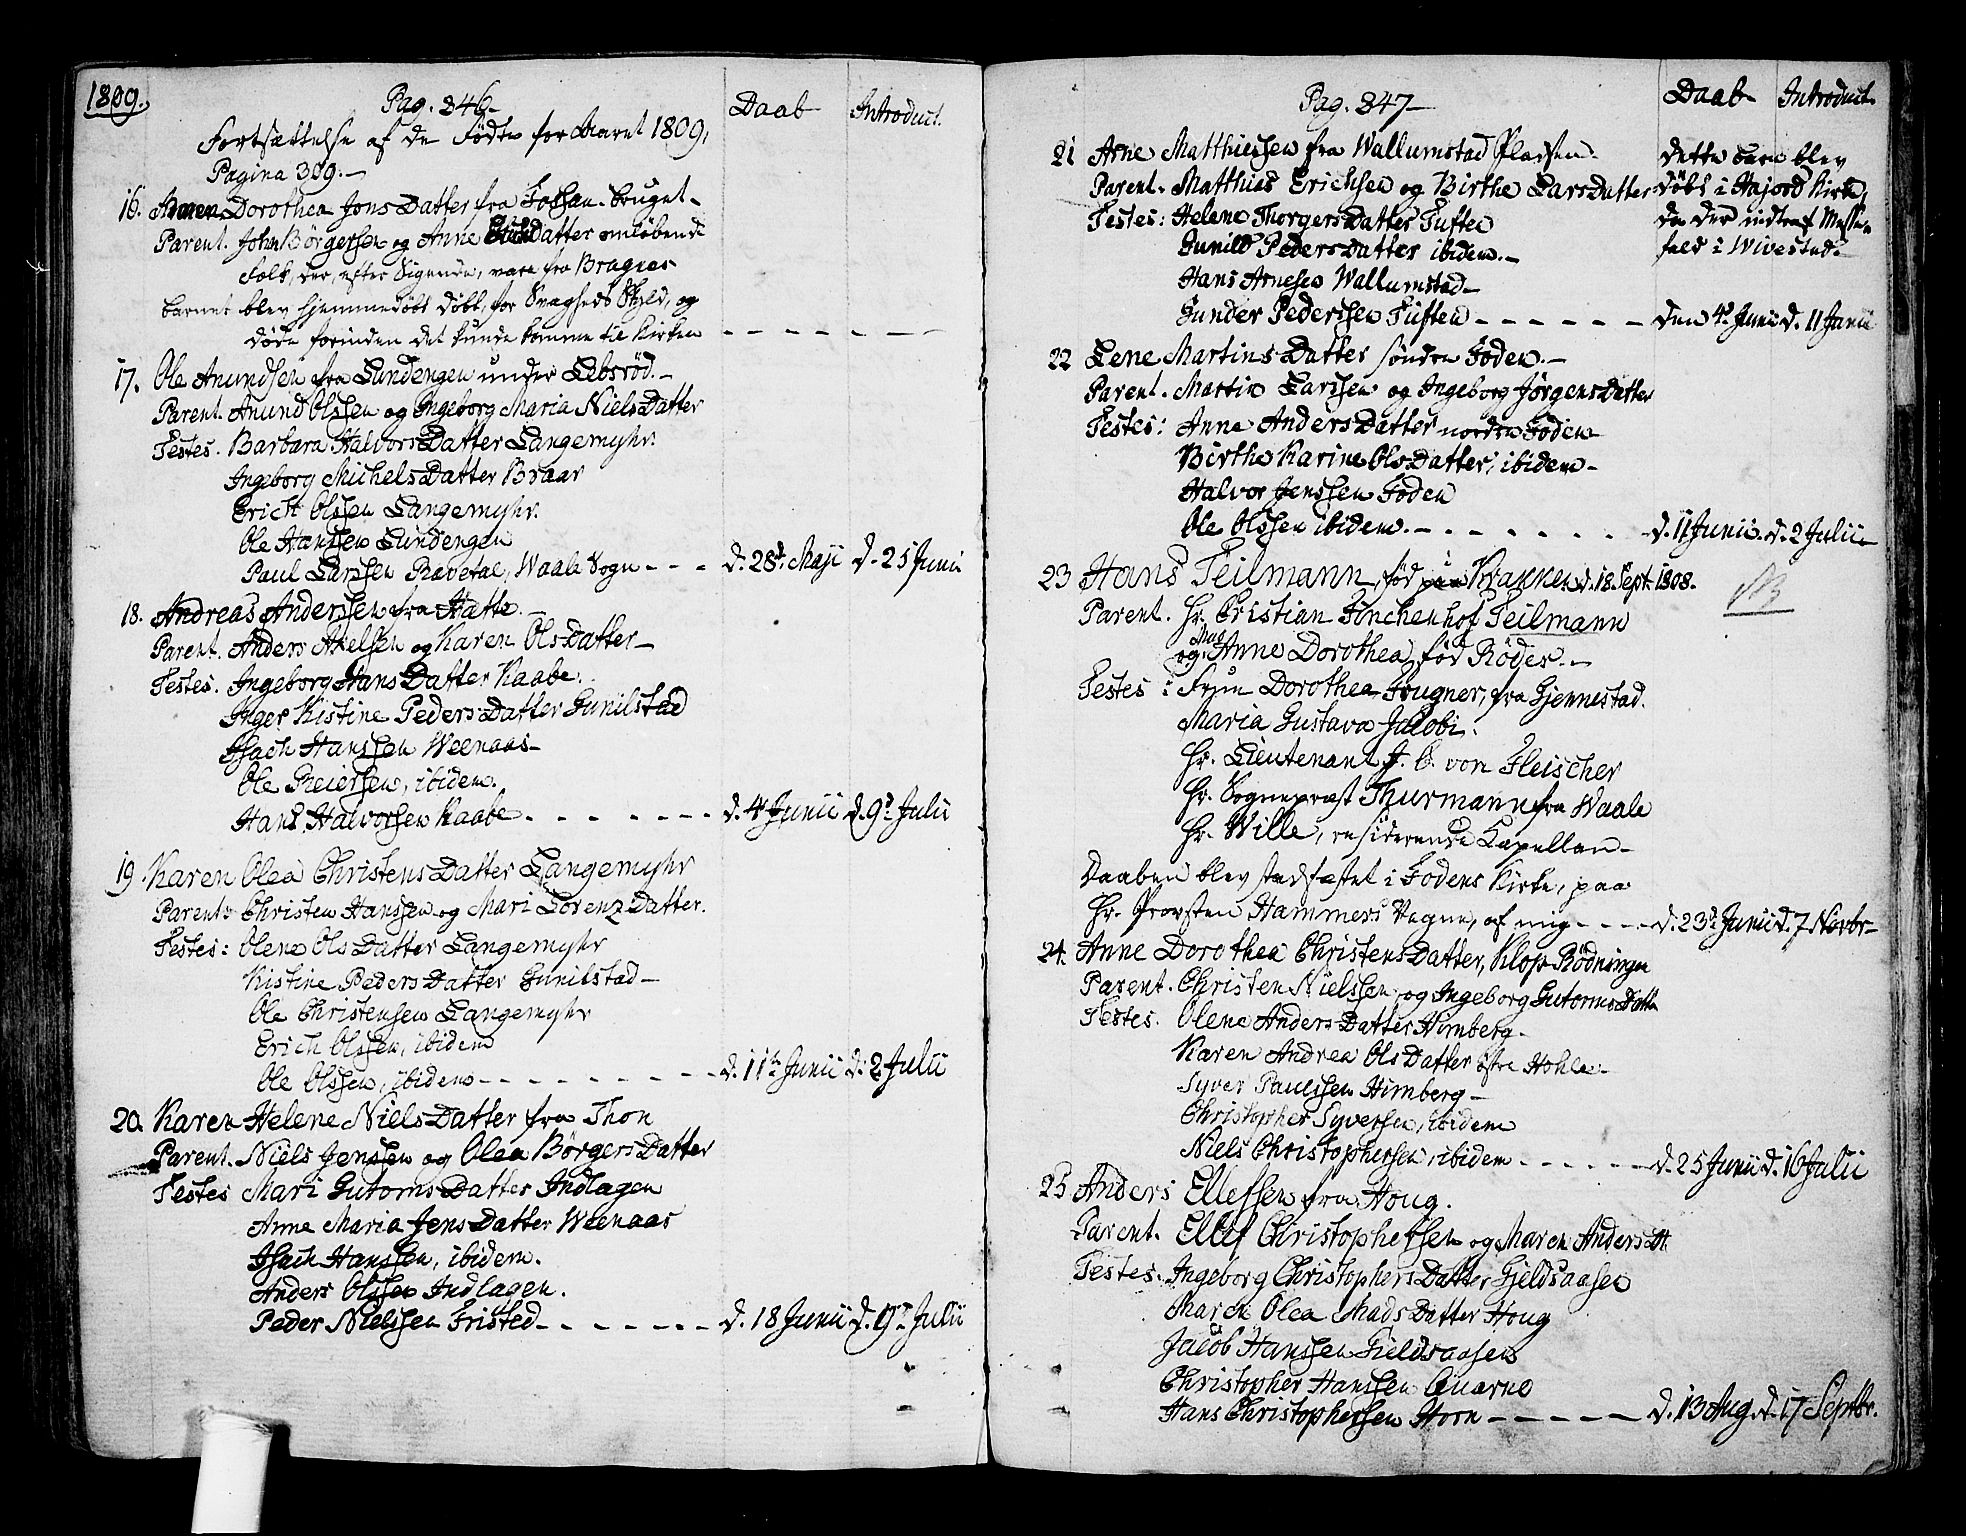 1809.
Pag. 346.
Daab Introduct.
Fortsættelse af de Fødte for Aaret 1809,
Pagina 309.
16. Maren Dorothea Jons Datter fra Fossan-bruget
Parent. John Börgersen og Anne Datter omløbende
Folk, der, efter Sigende, vare fra Bragnes
barnet blev hjemmedøbt døbt, for Svagheds Skyld, og
døde forinden det kunde komme til Kirken
17. Ole Anundsen fra Lundengen under Lebsröd.
Parent. Anund Olssen og Ingeborg Maria Niels Datter
Testes. Barbara Halvors Datter Langemyhr.
Ingeborg Michels Datter Braar
Erich Olssen Langemyhr.
Ole Hanssen Lundengen
Paul Larssen Rævetal, Waale Sogn - - - d. 28d. Maji d. 25 Junii
18. Andreas Anderssen fra Hatte.
Parent. Anders Axelsen og Karen Ols Datter
Testes. Ingeborg Hans Datter Kaabe.
Inger Kistine Peders Datter Gunilstad
Isach Hanssen Weenaas
Ole Reierssen, ibidem.
Hans Halvorssen Kaabe - - - d. 4d. Junii d. 9d. Julii
19. Karen Olea Christens Datter Langemyhr
Parent. Christen Hanssen og Mari Lorenz Datter.
Testes: Olena Ols Datter Langemyhr
Kistine Peders Datter Gunilstad
Ole Christensen Langemyhr
Erich Olssen, ibidem
Ole Olssen, ibidem - - - d. 11te Junii d. 2 Julii
20. Karen Helene Niels Datter fra Thon
Parent. Niels Jenssen og Olea Börgers Datter
Testes Mari Gutorms Datter Indlagen
Anne Maria Jens Datter Weenaas
Isach Hanssen, ibidem.
Anders Olssen Indlagen.
Peder Nielssen Fristed - - - d. 18 Junii d. Julii
Pag. 347
Daab Introduct.
21 Arne Matthiessen fra Wallumstad Pladsen.
Parent. Matthias Erichsen og Birthe Lars Datter
Testes: Helene Thorgers Datter Tuften
Gunild Peders Datter ibidem.
Hans Arnesen Wallumstad
Gunder Pederssen Tuften - - - den 4d. Junii d. 11 Junii
dette barn blev
døbt i Kirke,
da der indtraf Messe-
fald i Wivestad.
22 Lene Martins Datter søndre Foden.
Parent. Martin Larssen og Ingeborg Jörgens Datter
Testes: Anne Anders Datter nordre Foden
Birthe Karine Ols Datter, ibidem
Halvor Jenssen Foden
Ole Olssen ibidem. - - - d. 11 Junii. d. 2 Julii
23 Hans Teilmann, fød paa Krakken d. 18. Sept. 1808.
NB
Parent. Hr. Cristian Finchenhof Teilmann
og Mad. Anne Dorothea, fød Röder.
Testes: Fruen Dorothea Frugner, fra Gjennestad.
Maria Gustava Jacobi.
Hr. Lieutenant J. C. von Fleischer
Hr. Sognepræst Thurmann fra Waale
Hr. Wille, residerende Capellan
Daaben blev stadfæstet i Fodens Kirke, paa
Hr. Provsten Hammers Vegne, af mig - - - d. 23d. Junii d. 7 Novbr
24. Anne Dorothea Christens Datter, Klop-Rödningen
Parent. Christen Nielssen og Ingeborg Gutorms Datt
Testes. Olena Anders Datter Himberg.
Karen Andrea Ols Datter østre Hohle
Syver Paulssen Himberg
Christopher Syversen, ibidem
Niels Christophersen, ibidem - - - d. 25 Junii d. 16 Julii
25 Anders Ellefsen fra Houg.
Parent. Ellef Christophersen og Maren Anders Dt.
Testes. Ingeborg Christophers Datter Fjeldsaasen
Maren Olea Mads Datter Houg
Jacob Hanssen Fieldsaasen
Christopher Hanssen Quarne
Hans Christophersen Horn - - - d. 13 Aug. d. 17 Septbr.